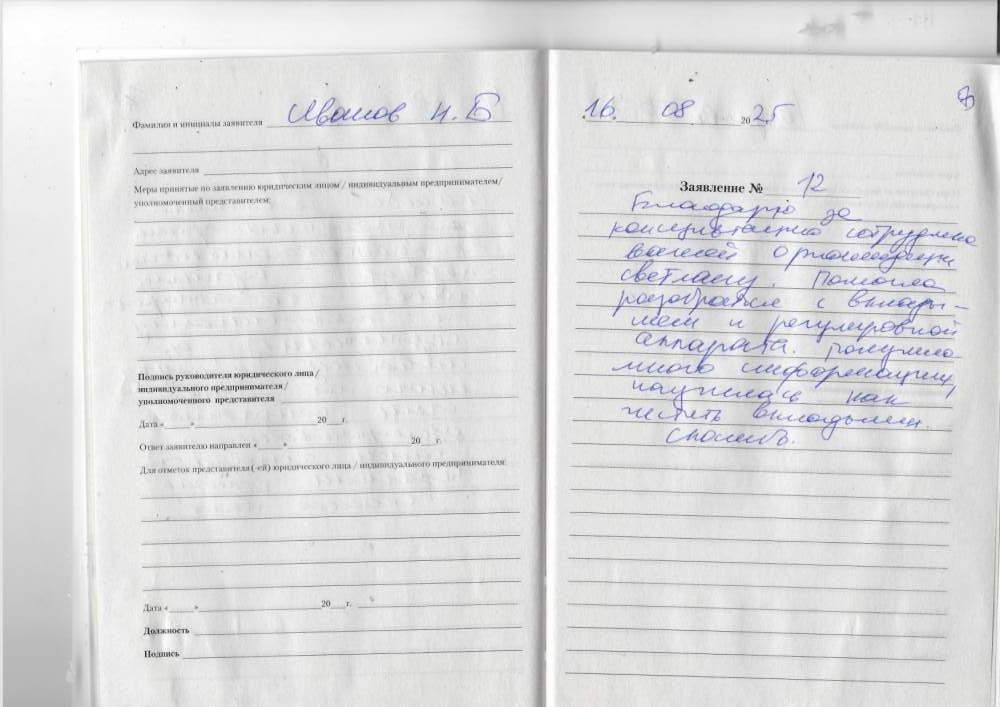 Фамилия и инициалы заявителя Иванов Н. Б
Адрес заявителя
Меры принятые по заявлению юридическим лицом / индивидуальным предпринимателем/
уполномоченный представителем:
Подпись руководителя юридического лица /
индивидуального предпринимателя /
уполномоченного представителя
Дата «____»____ 20___г.
Ответ заявителю направлен «____»____ 20___г.
Для отметок представителя (-ей) юридического лица / индивидуального предпринимателя:
Дата «____»____ 20___г.
Должность
Подпись
16. 08 2025
Заявление № 12
Благодарю за
консультацию сотрудника
вашей организации
светлану. Помогла
разобраться с вклады-
шем и регулировкой
аппарата. Получила
много информации,
научилась как
чистить вкладыши.
Спасибо.